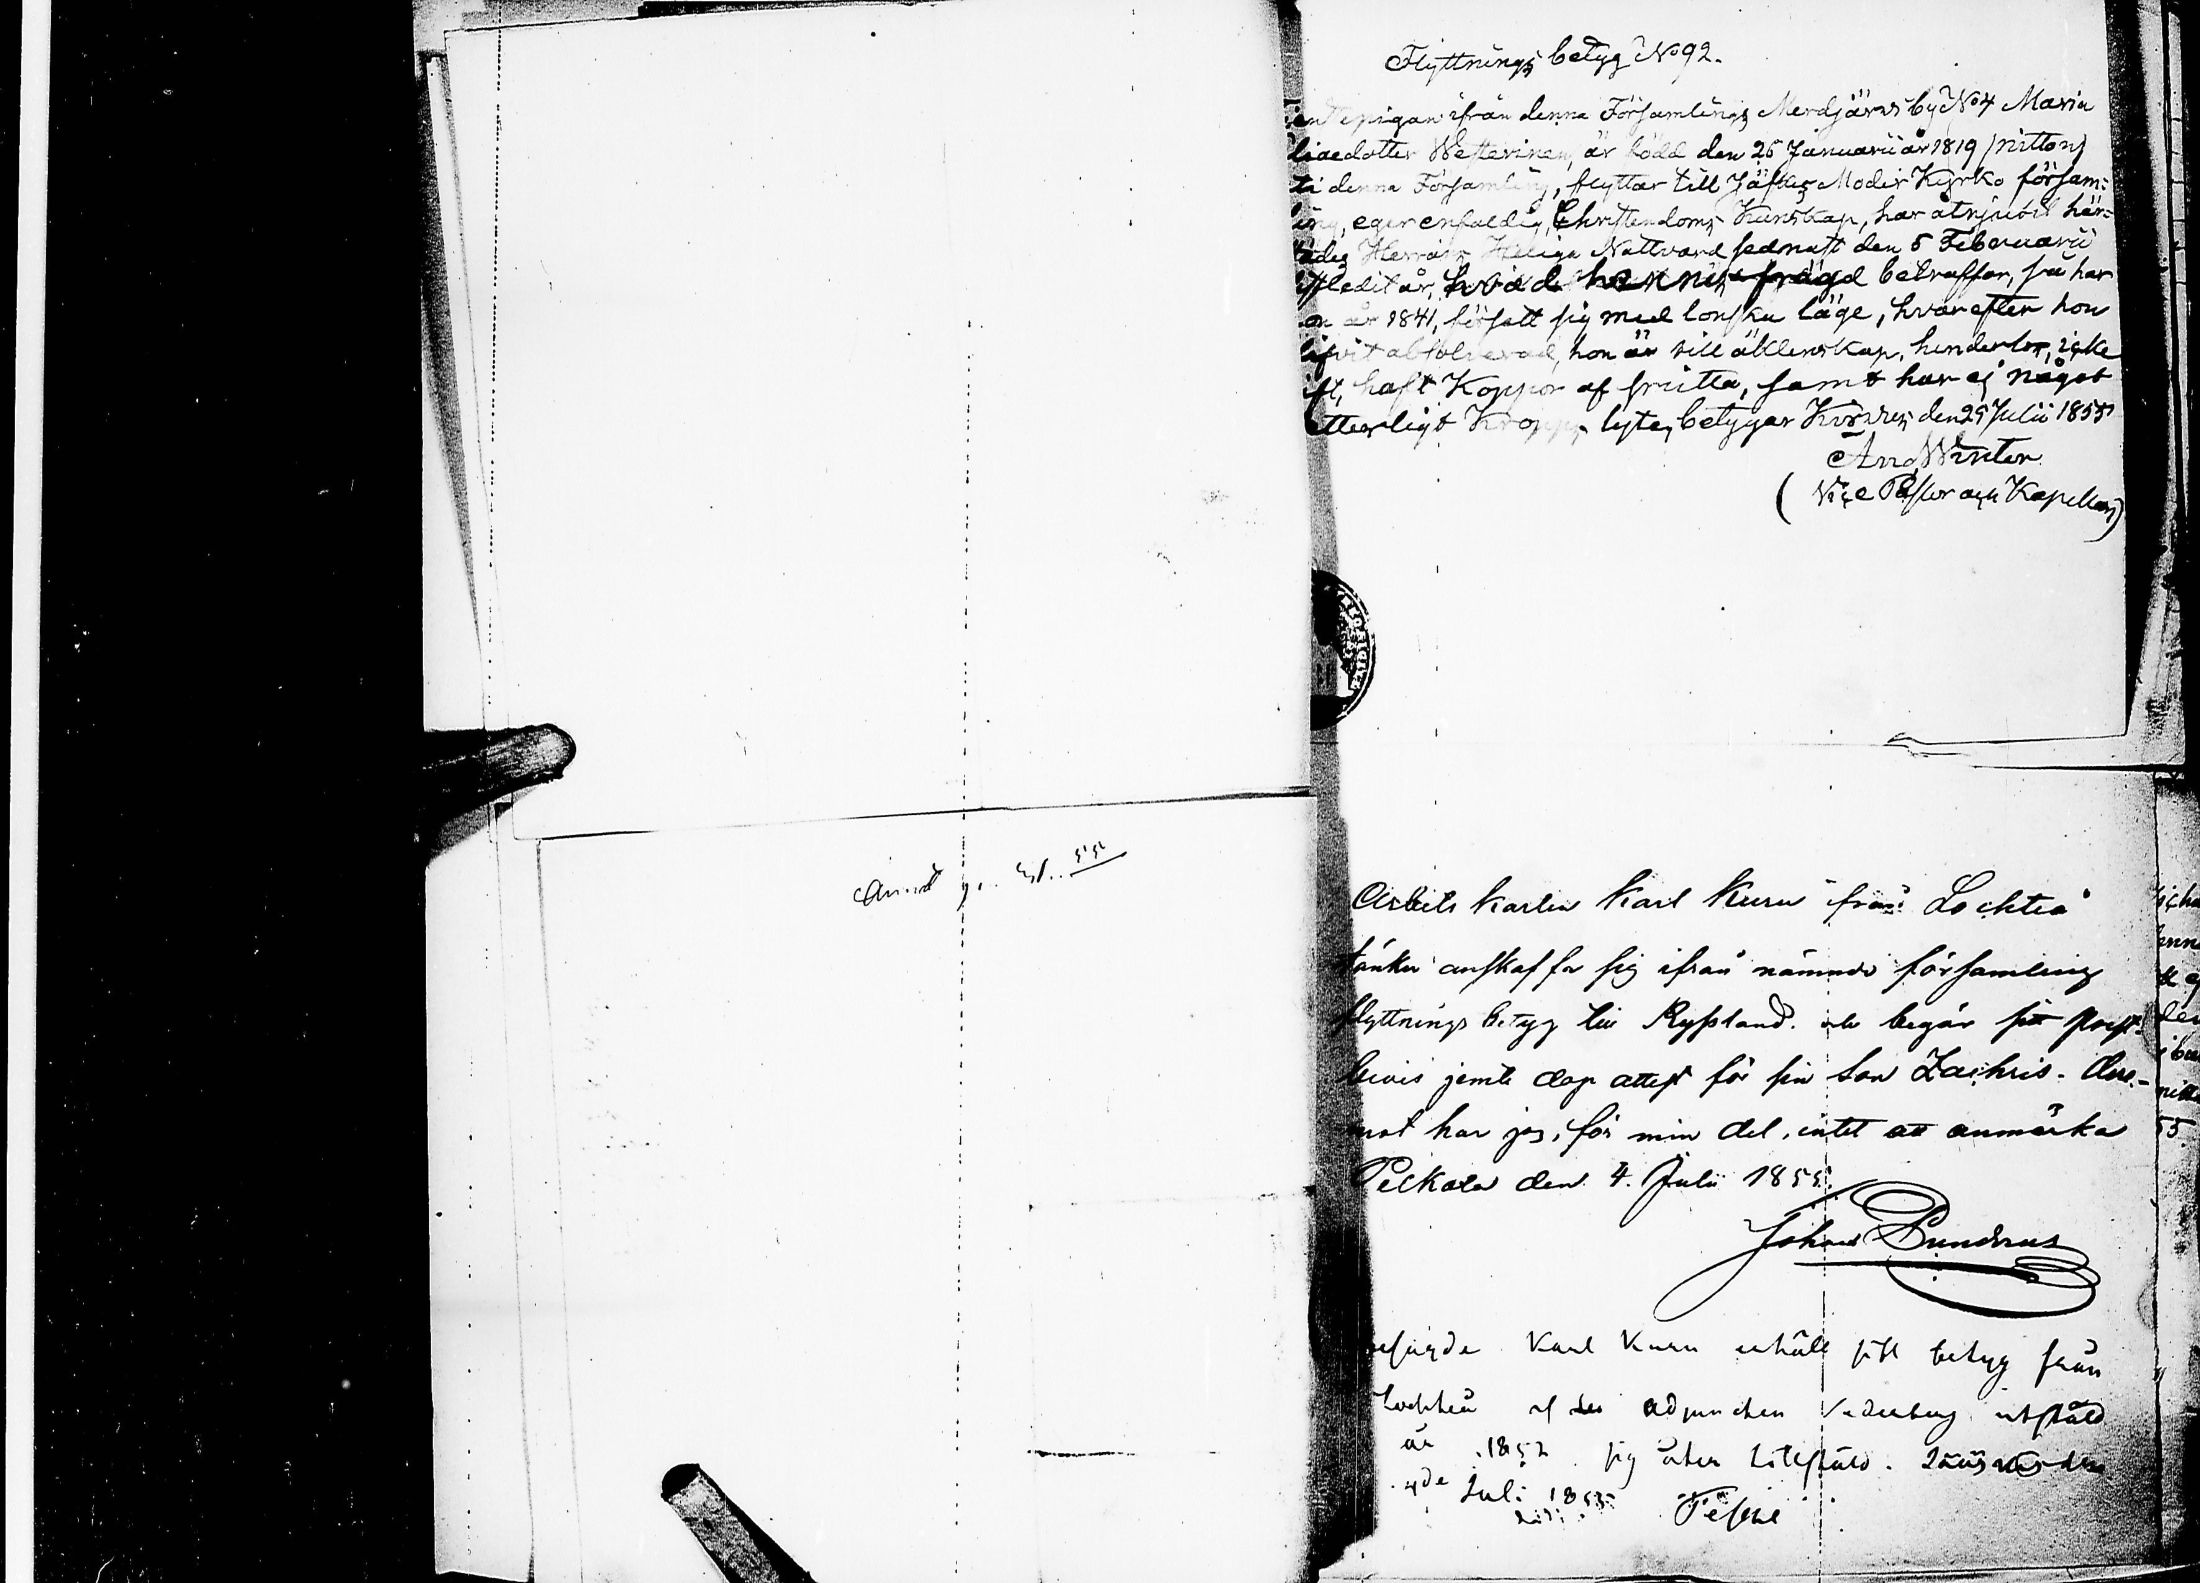 Flyttnings betyg No 92.
pigan ifrån denna Församlings Merdjärvi by No 4 Maria
dotter Westerinen, är född den 26 Januarii år 1819 /nitton/
i denna Församling, flyttar till Jäskis Moder Kyrko försam-
ling, eger enfaldig Christendoms Kunskap, har åtnjutit här-
städes Herrans Heliga Nattvard sednast den 5 Februarii
år, hvad hennes frägd beträffar, så har
hon år 1841, försett sig med lönska läge, hvarefter hon
blifvit absolverad, hon är till äktenskap, hinderlös, icke
gift, haft Koppor af Smitta, samt har ej något
ytterligt Kropps lyte, betygar Kirvus den 29 Julii 1855
And. Winter
(Vice Pastor och Kapellan)
55
Arbets karlen Karl Kuru från Lochteå
tänker anskaffa sig ifrån nämnde församling
flyttnings betyg till Ryssland. och begär sitt prest-
bevis jemte dop attest för sin Son Zachris. Der-
mot har jag, för min del, intet att anmärka
den 4. Julii 1855.
Johan Sundnäs
Karl Kuru erhöll sitt betyg från
Lochteå af adjuncten utstäld
år 1852 sig åter
4de Juli 1855